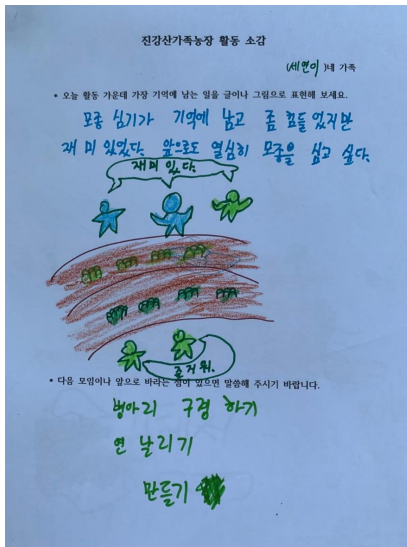 진강산가족농장 활동 소감
(세연이)네 가족
• 오늘 활동 가운데 가장 기억에 남는 일을 글이나 그림으로 표현해 보세요.
모종 심기가 기억에 남고 좀 힘들었지만
재미 있었다. 앞으로도 열심히 모종을 심고 싶다.
재미 있다.
즐거워.
• 다음 모임이나 앞으로 바라는 점이 있으면 말씀해 주시기 바랍니다.
병아리 구경 하기
연 날리기
만들기